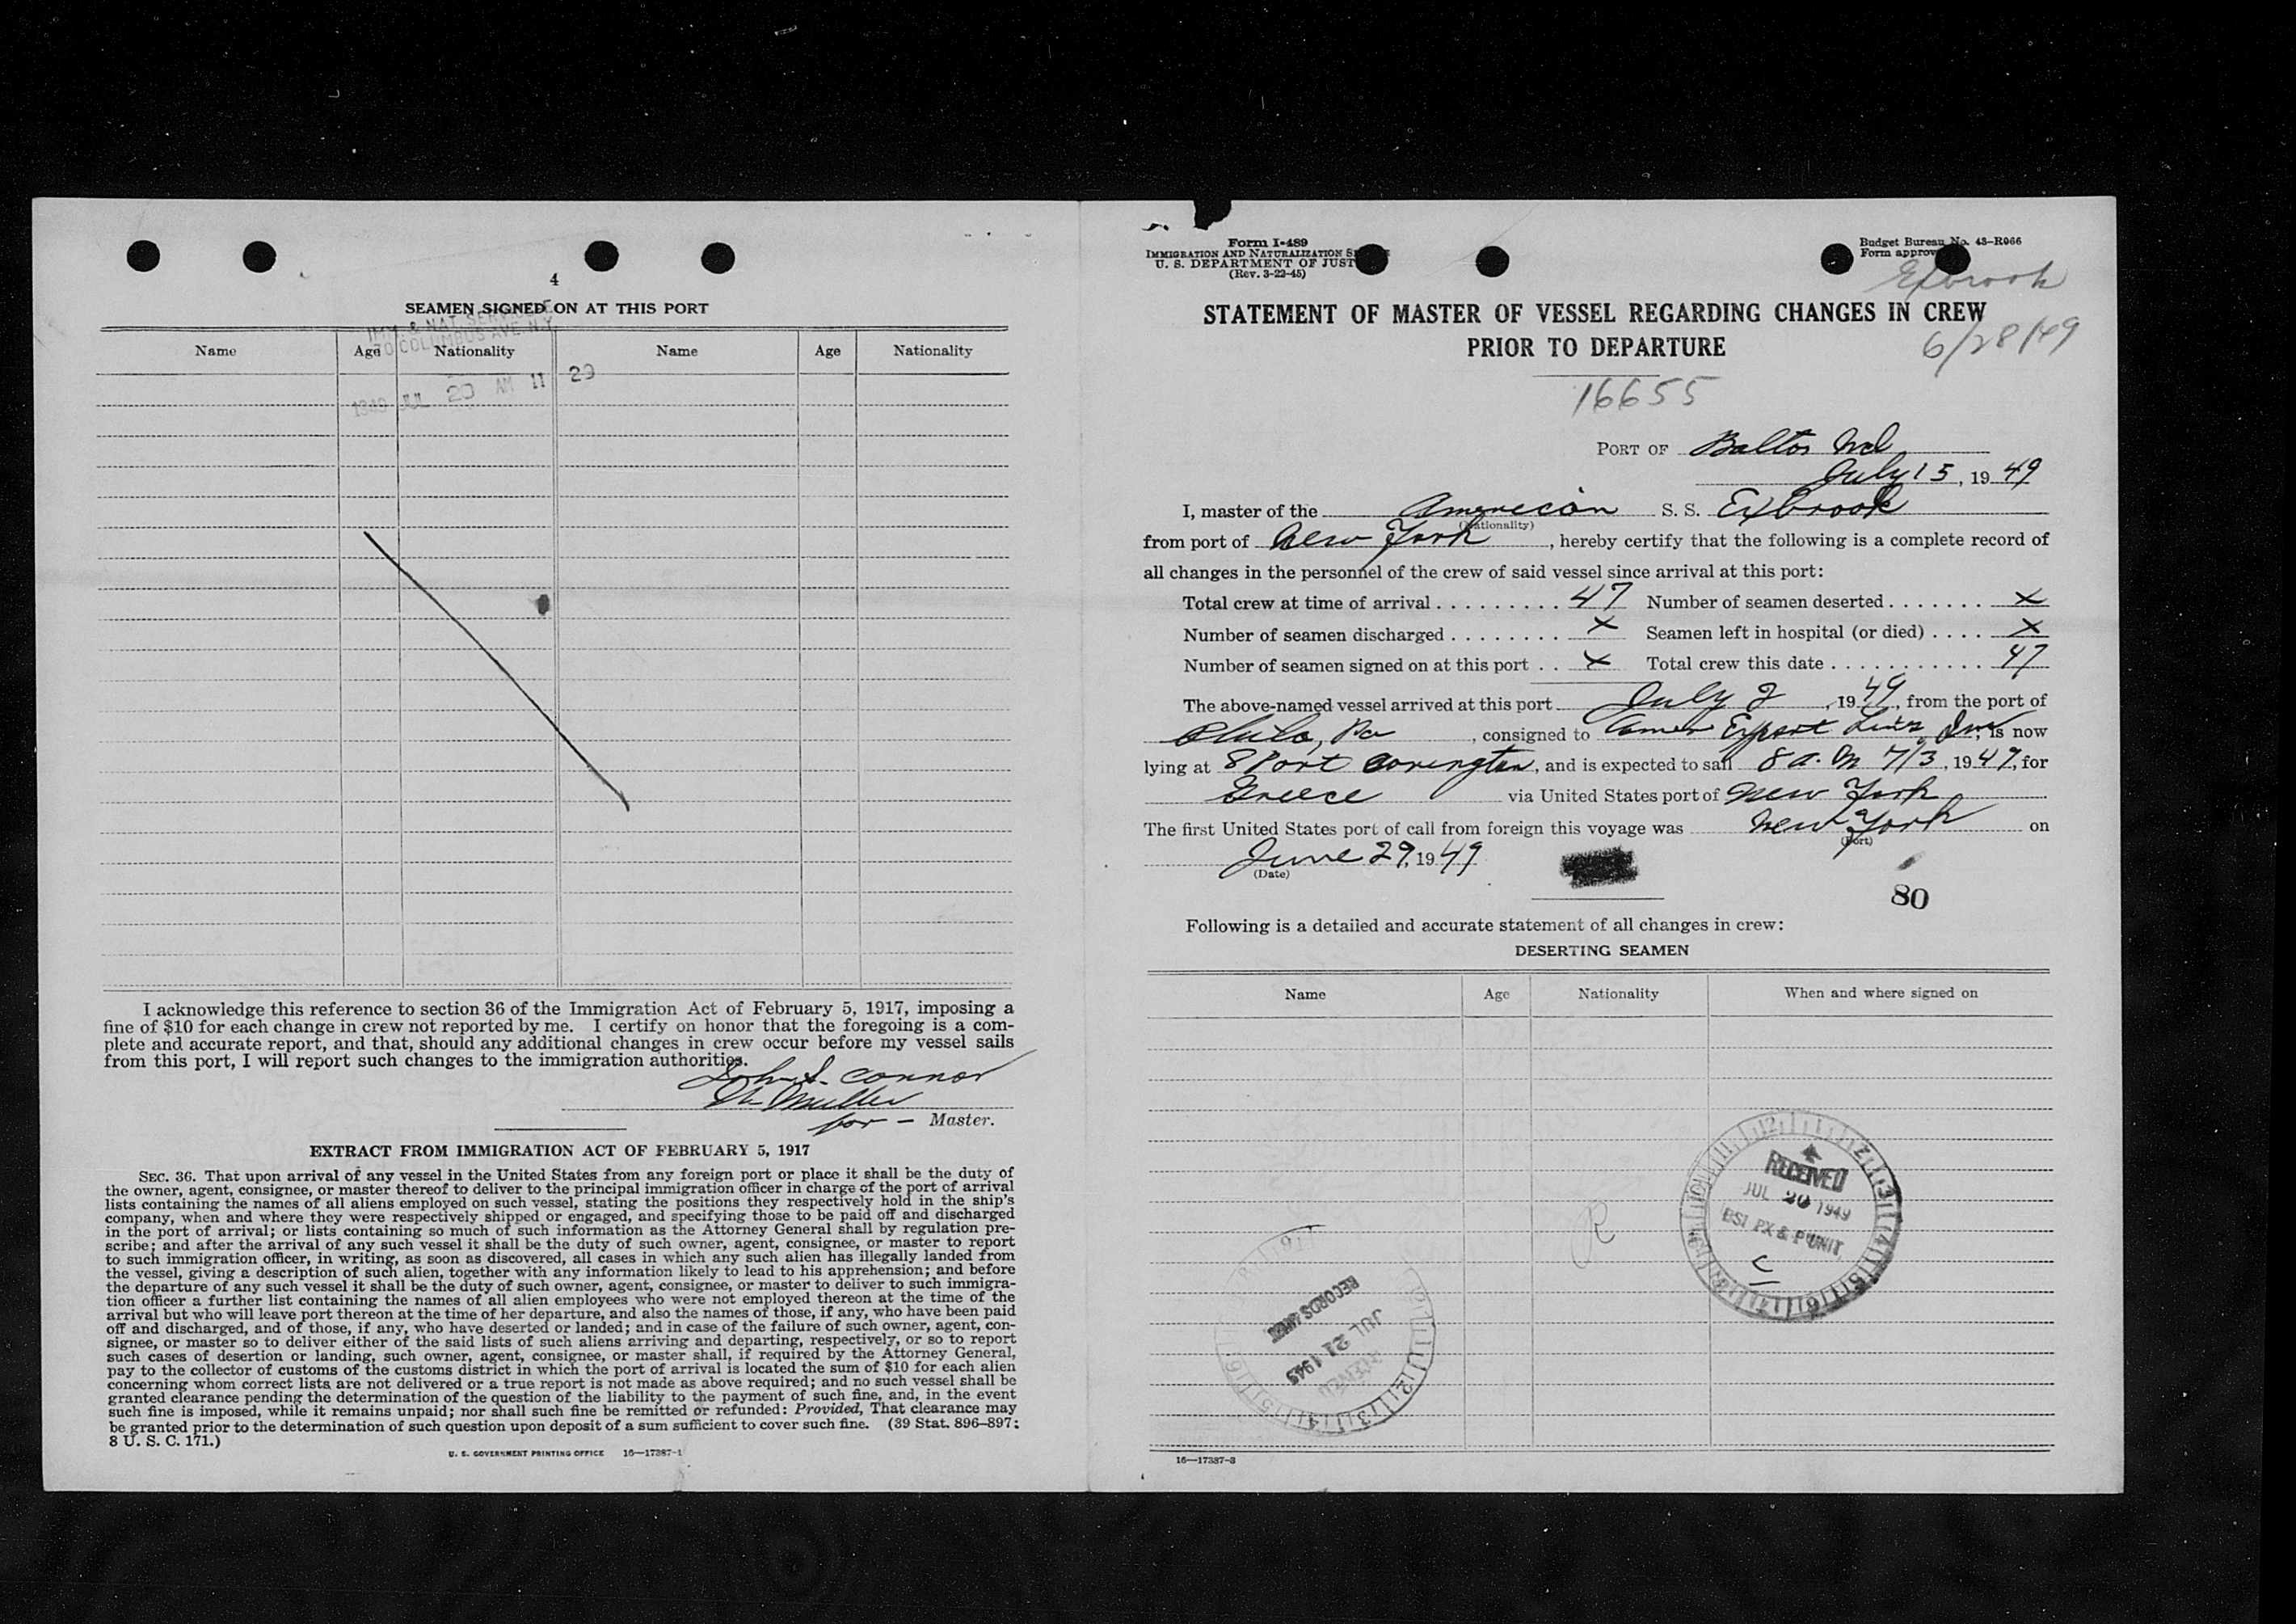 4
SEAMEN SIGNED ON AT THIS PORT
IMM. & NAT. SERVICE
70 COLUMBUS AVE. N.Y.
Name Age Nationality Name Age Nationality
1949 JUL 20 AM 11 29
I acknowledge this reference to section 36 of the Immigration Act of February 5, 1917, imposing a
fine of $10 for each change in crew not reported by me. I certify on honor that the foregoing is a com-
plete and accurate report, and that, should any additional changes in crew occur before my vessel sails
from this port, I will report such changes to the immigration authorities.
John S. Connor
Muller
for — Master.
EXTRACT FROM IMMIGRATION ACT OF FEBRUARY 5, 1917
SEC. 36. That upon arrival of any vessel in the United States from any foreign port or place it shall be the duty of
the owner, agent, consignee, or master thereof to deliver to the principal immigration officer in charge of the port of arrival
lists containing the names of all aliens employed on such vessel, stating the positions they respectively hold in the ship's
company, when and where they were respectively shipped or engaged, and specifying those to be paid off and discharged
in the port of arrival; or lists containing so much of such information as the Attorney General shall by regulation pre-
scribe; and after the arrival of any such vessel it shall be the duty of such owner, agent, consignee, or master to report
to such immigration officer, in writing, as soon as discovered, all cases in which any such alien has illegally landed from
the vessel, giving a description of such alien, together with any information likely to lead to his apprehension; and before
the departure of any such vessel it shall be the duty of such owner, agent, consignee, or master to deliver to such immigra-
tion officer a further list containing the names of all alien employees who were not employed thereon at the time of the
arrival but who will leave port thereon at the time of her departure, and also the names of those, if any, who have been paid
off and discharged, and of those, if any, who have deserted or landed; and in case of the failure of such owner, agent, con-
signee, or master so to deliver either of the said lists of such aliens arriving and departing, respectively, or so to report
such cases of desertion or landing, such owner, agent, consignee, or master shall, if required by the Attorney General,
pay to the collector of customs of the customs district in which the port of arrival is located the sum of $10 for each alien
concerning whom correct lists are not delivered or a true report is not made as above required; and no such vessel shall be
granted clearance pending the determination of the question of the liability to the payment of such fine, and, in the event
such fine is imposed, while it remains unpaid; nor shall such fine be remitted or refunded: Provided, That clearance may
be granted prior to the determination of such question upon deposit of a sum sufficient to cover such fine. (39 Stat. 896–897;
8 U. S. C. 171.)
U. S. GOVERNMENT PRINTING OFFICE 16—17387-1
Form I-489
IMMIGRATION AND NATURALIZATION S
U. S. DEPARTMENT OF JUST
(Rev. 3-22-45)
Budget Bureau No. 43-R066
Form approv
Exbrook
STATEMENT OF MASTER OF VESSEL REGARDING CHANGES IN CREW
PRIOR TO DEPARTURE
6/28/49
16655
PORT OF Balto, Md
July 15, 1949
I, master of the American S. S. Exbrook
(Nationality)
from port of New York, hereby certify that the following is a complete record of
all changes in the personnel of the crew of said vessel since arrival at this port:
Total crew at time of arrival . . . . . . . . . . 47 Number of seamen deserted . . . . . . . X
Number of seamen discharged . . . . . . . . X Seamen left in hospital (or died) . . . . X
Number of seamen signed on at this port . . X Total crew this date . . . . . . . . . . . . 47
The above-named vessel arrived at this port July 2, 1949, from the port of
Phila, Pa, consigned to Amer Export Lines, Inc, is now
lying at 8 Port Covington, and is expected to sail 8 a. m 7/3, 1949, for
Greece via United States port of New York
The first United States port of call from foreign this voyage was New York on
(Port)
June 29, 1949
(Date)
80
Following is a detailed and accurate statement of all changes in crew:
DESERTING SEAMEN
Name Age Nationality When and where signed on
RECEIVED
JUL 20 1949
BSI PX & P UNIT
C
R
RECORDS
JUL 21 1949
RECEIVED
16—17387-3